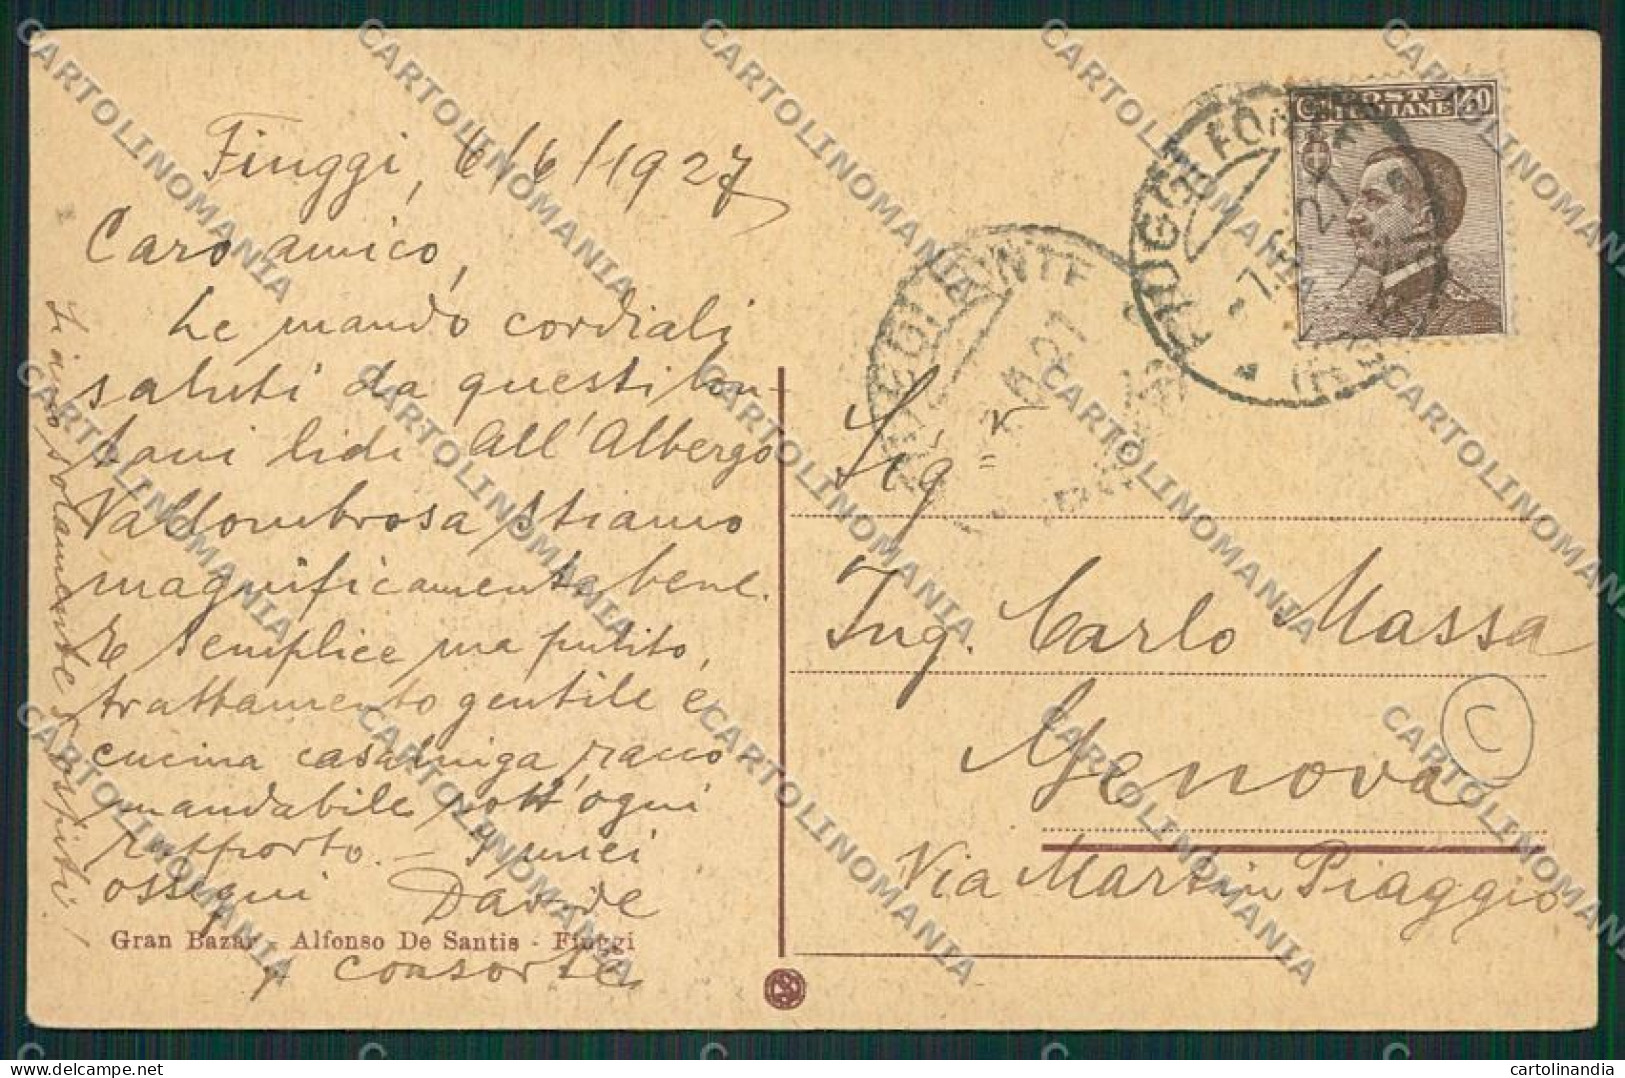 Fiuggi, 6/6/1927
Caro amico,
Le mando cordiali
saluti da questi lon-
tani lidi All'Albergo
Vallombrosa stiamo
magnificamente bene.
È semplice ma pulito,
trattamento gentile e
cucina casalinga, racco
mandabile sott'ogni
rapporto. – I miei
ossequi Davide
e consorte
Siamo solamente 5 ospiti!
Gran Bazar - Alfonso De Santis - Fiuggi
POSTE
ITALIANE
40
FIUGGI FONTE
Sig.r
Ing. Carlo Massa
Genova
Via Martin Piaggio
C
CARTOLINOMANIA
cartolinandia